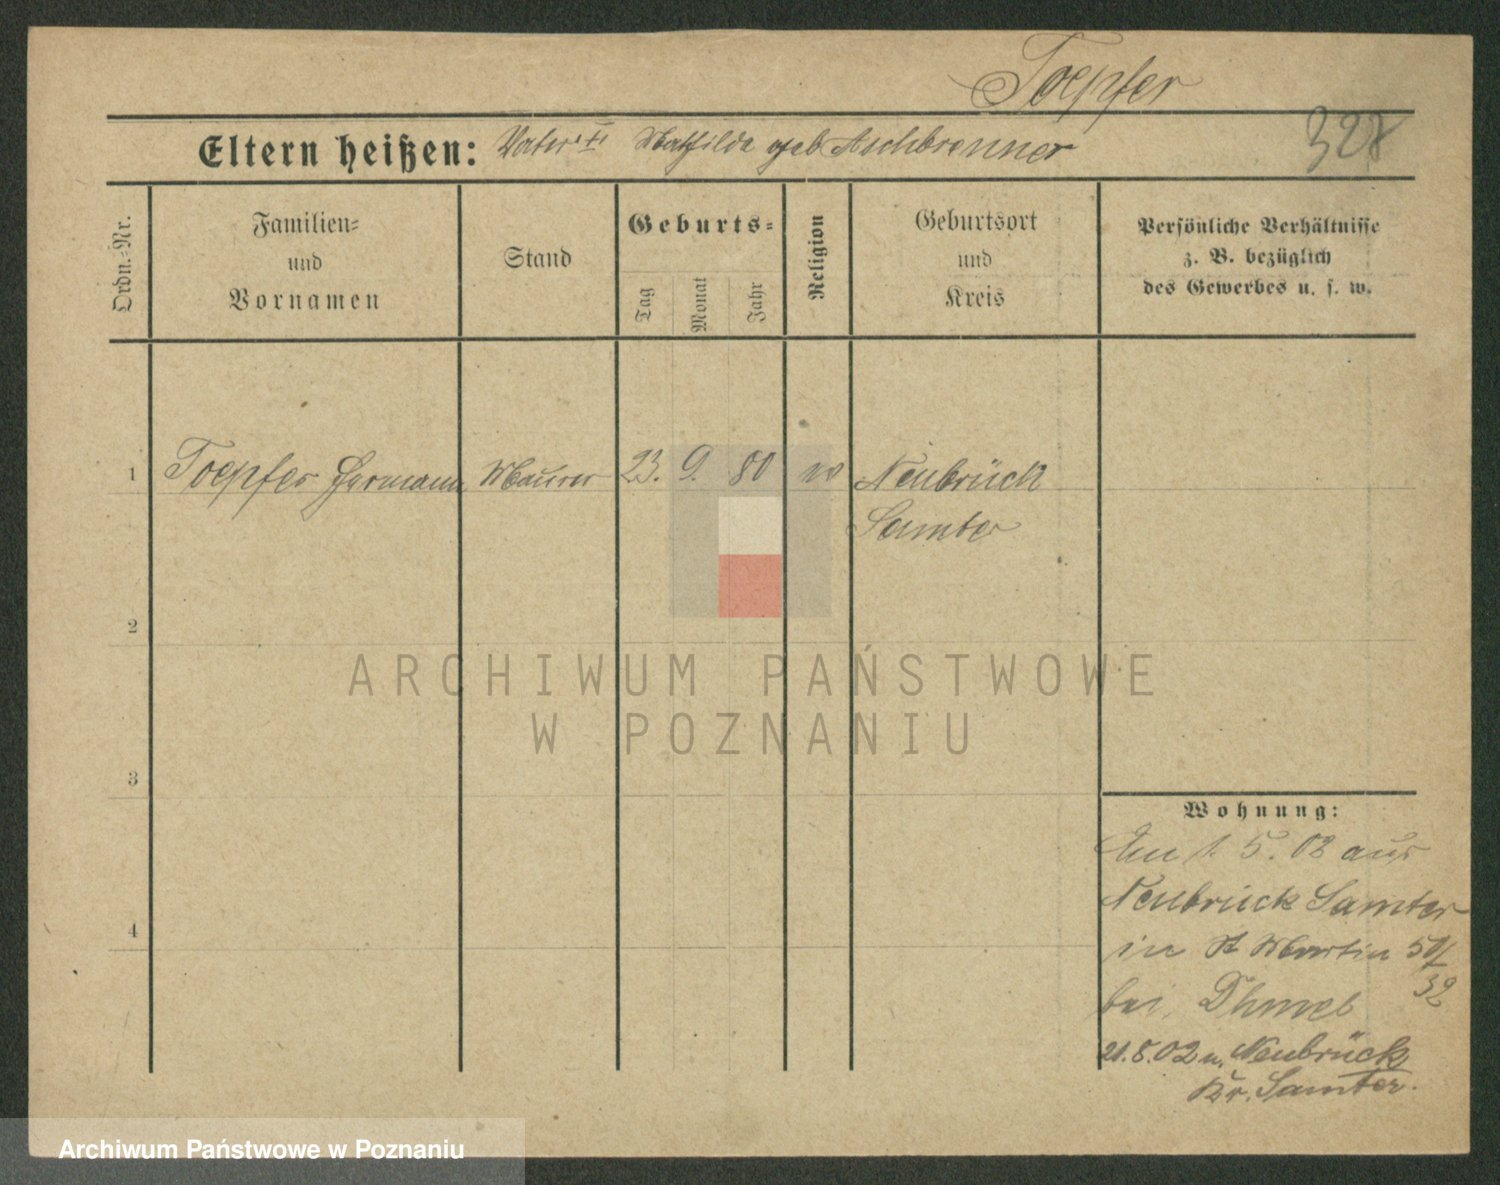 Toepfer
328
Eltern heißen: Vater Mathilde geb Aschbrenner
Ordn.-Nr.
Familien-
und
Vornamen
Stand
Geburts-
Tag
Monat
Jahr
Religion
Geburtsort
und
Kreis
Persönliche Verhältnisse
z. B. bezüglich
des Gewerbes u. s. w.
1 Toepfer Hermann Maurer 23. 9. 80 Neubrück
Samter
2
ARCHIWUM PAŃSTWOWE
W POZNANIU
3
Wohnung:
Am 1. 5. 02 aus
Neubrück Samter
4
in St Martin 50/
32
bei
21.8.02 n. Neubrück
Kr. Samter.
Archiwum Państwowe w Poznaniu